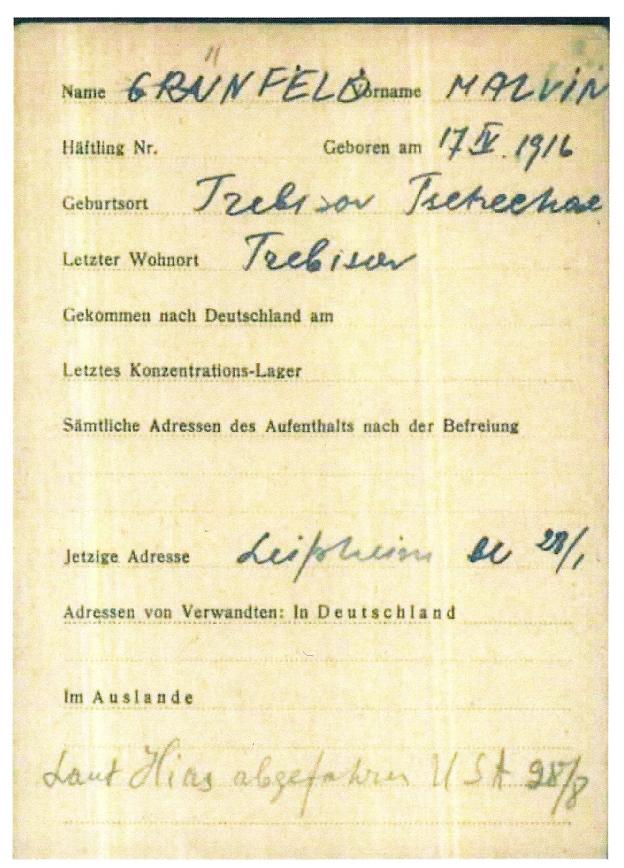 Name GRÜNFELD Vorname MALVIN
Häftling Nr. Geboren am 17 IV. 1916
Geburtsort Trebisov Tschechoe
Letzter Wohnort Trebisov
Gekommen nach Deutschland am
Letztes Konzentrations-Lager
Sämtliche Adressen des Aufenthalts nach der Befreiung
Jetzige Adresse Leipheim 28/1
Adressen von Verwandten: In Deutschland
Im Auslande
Laut Hias abgefahren USA 28/8